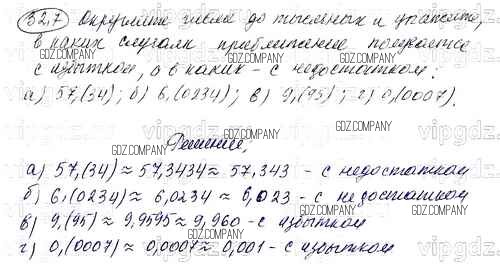 32,7 Округлите числа до тысячных и укажите,
в каких случаях приближение получается
с избытком, а в каких - с недостатком:
а) 57,(34); б) 6,(0234); в) 9,(95); г) 0,(0007).
Решение,
а) 57,(34) ≈ 57,3434 ≈ 57,343 - с недостатком
б) 6,(0234) ≈ 6,0234 ≈ 6,023 - с недостатком
в) 9,(95) ≈ 9,9595 ≈ 9,960 - с избытком
г) 0,(0007) ≈ 0,0007 ≈ 0,001 - с избытком